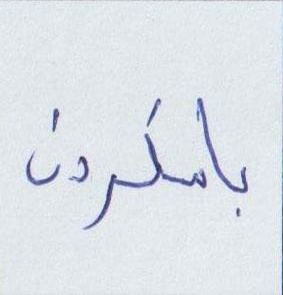 بامکردن